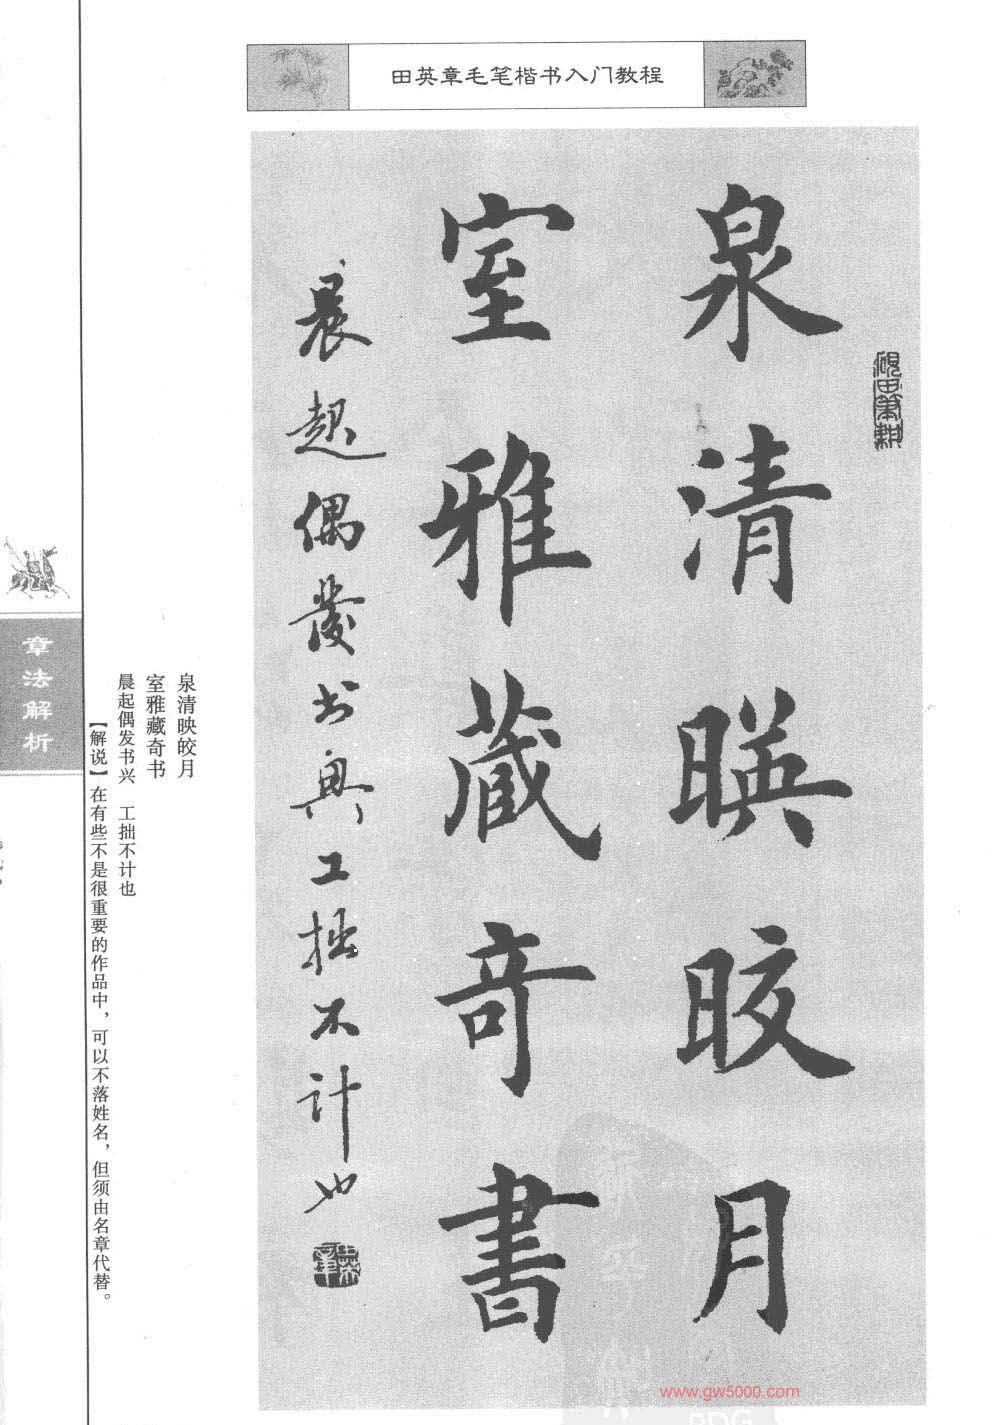 田英章毛笔楷书入门教程
泉清暎晈月
室雅蔵奇書
晨起偶發书興工拙不计也
泉清映皎月
室雅藏奇书
晨起偶发书兴 工拙不计也
【解说】在有些不是很重要的作品中，可以不落姓名，但须由名章代替。
章法解析
www.gw5000.com